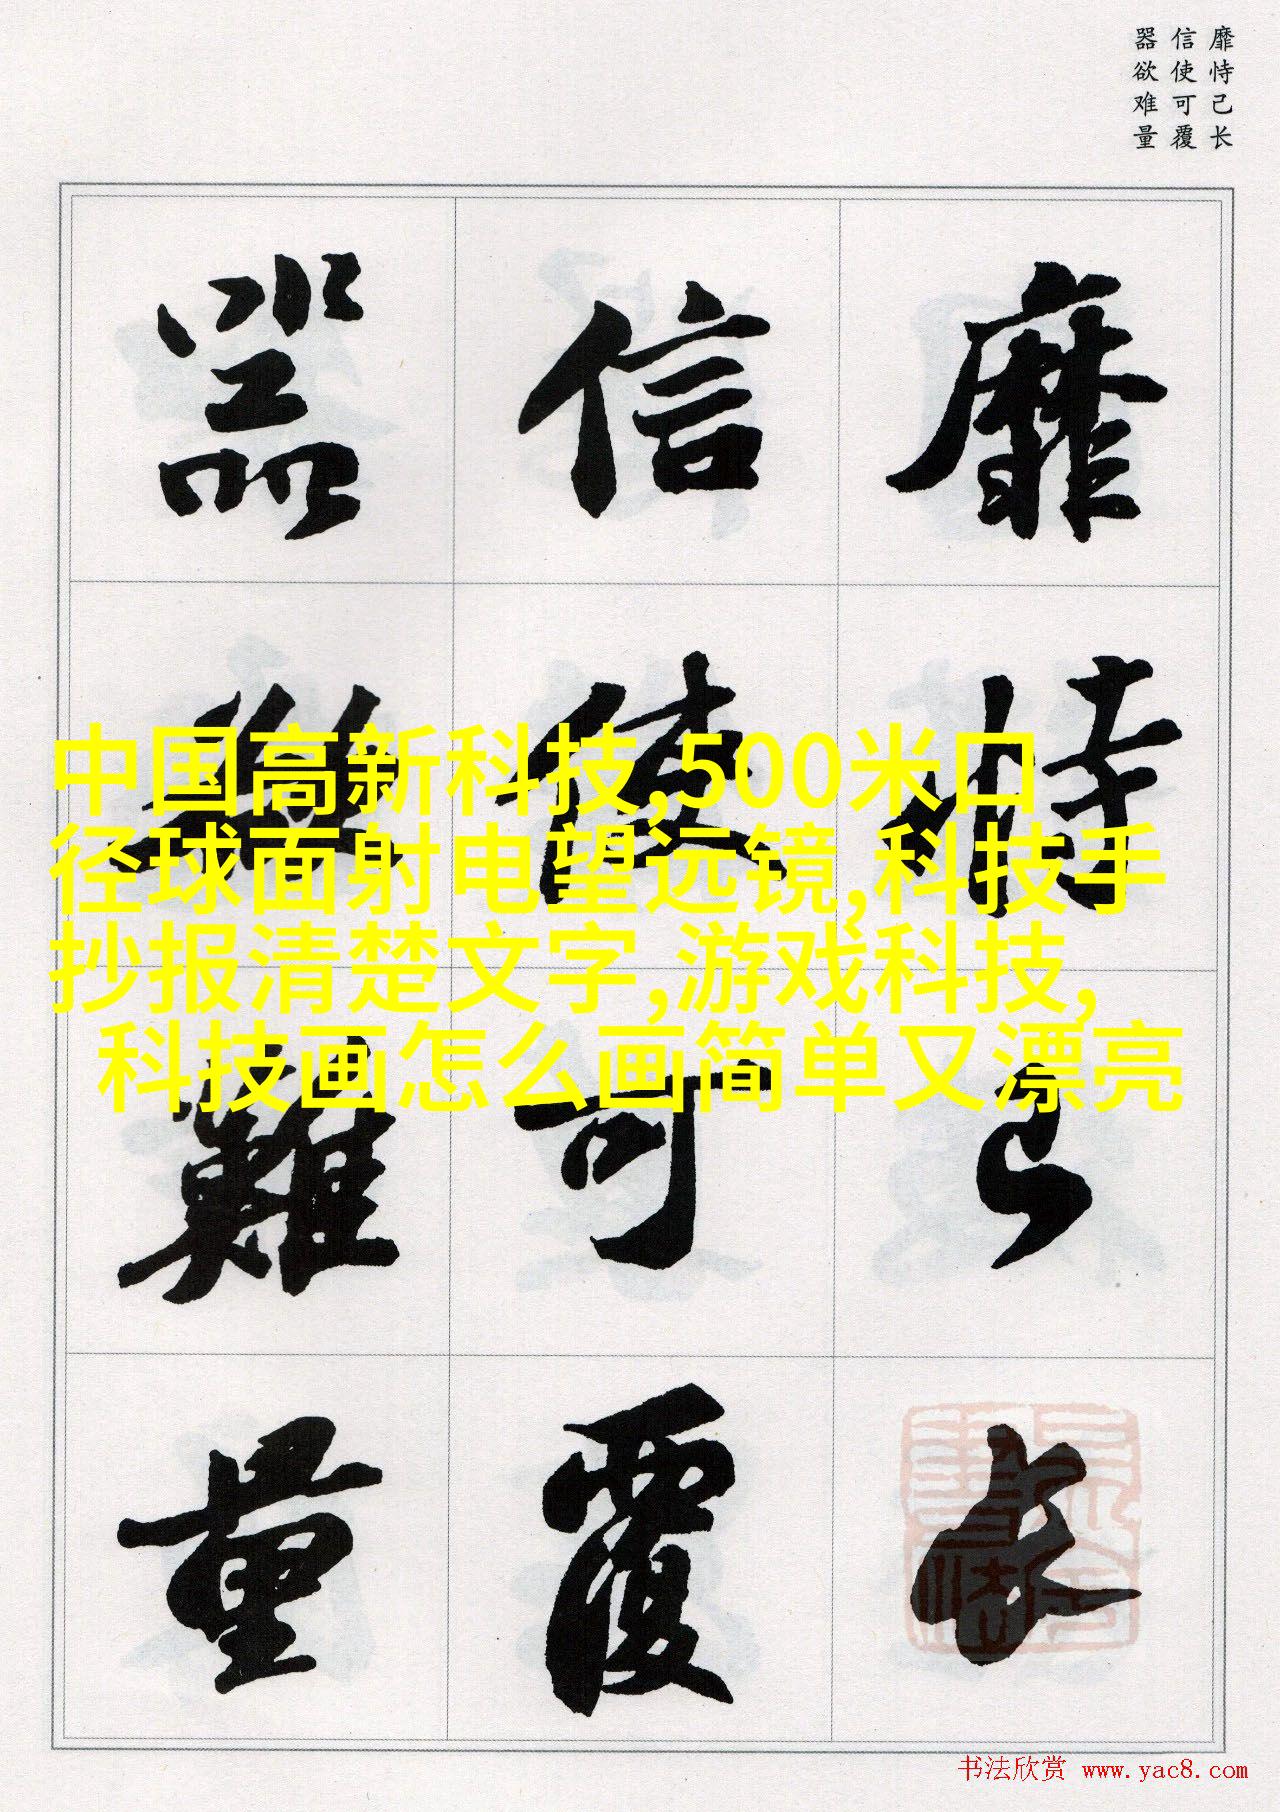 靡恃己长
信使可覆
器欲难量
靡恃己长
信使可覆
器欲難量
中国高新科技,500米口
径球面射电望远镜,科技手
抄报清楚文字,游戏科技,
科技画怎么画简单又漂亮
书法欣赏 www.yac8.com